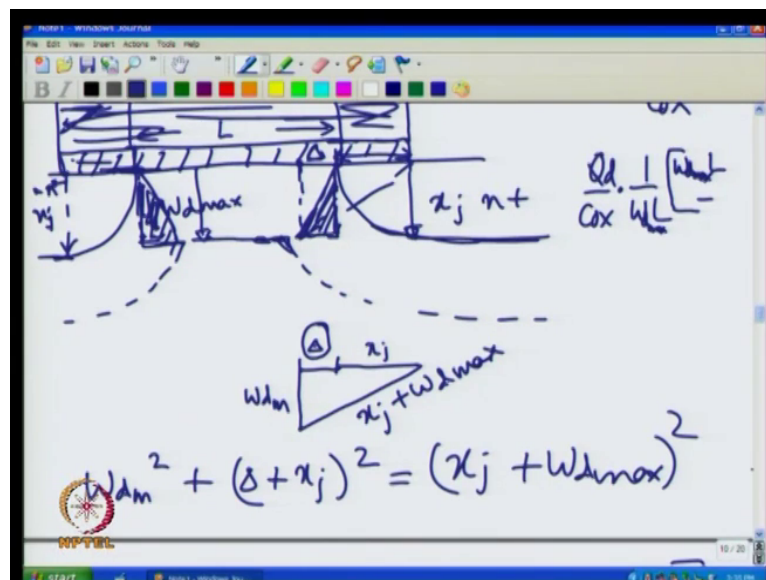 Note1 - Windows Journal
File Edit View Insert Actions Tools Help
B I
L
Cox
Δ
xj
Wdmax
xj n+
Qd/Cox · 1/WdmL [WdmaxL -
Δ
xj
Wdm
xj + Wdmax
Wdm² + (Δ + xj)² = (xj + Wdmax)²
NPTEL
10 / 20
start
Note1 - Windows Jou...